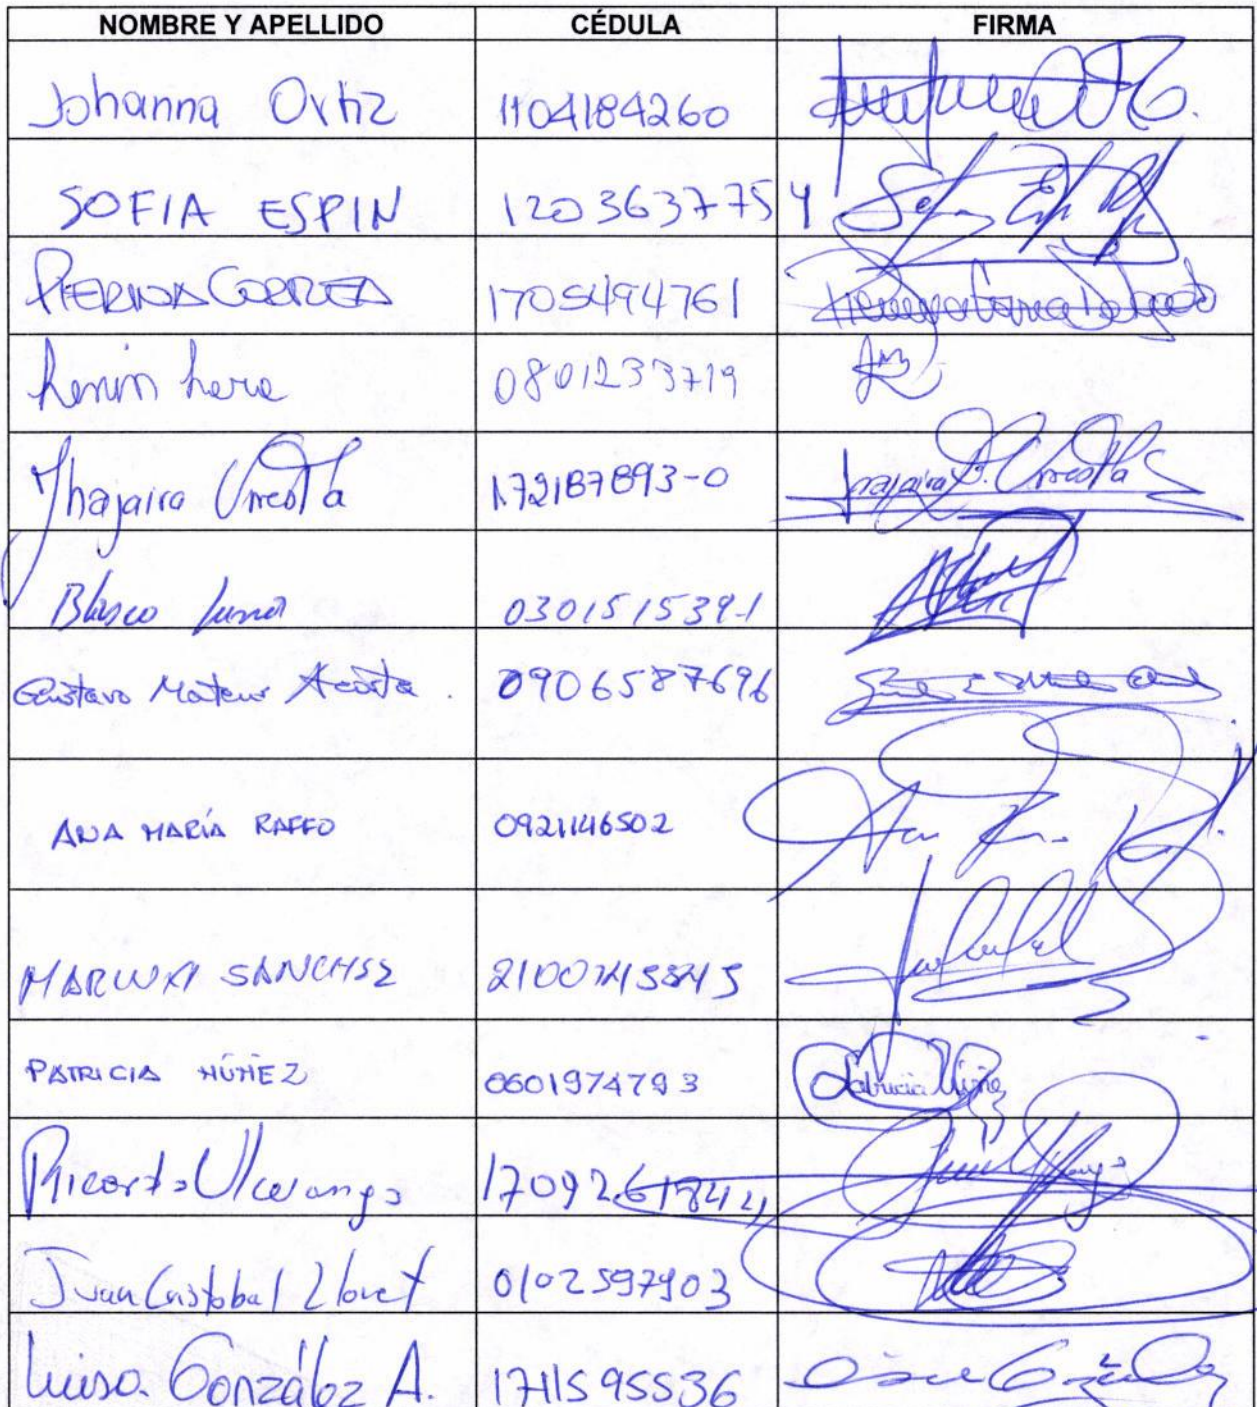 NOMBRE Y APELLIDO CÉDULA FIRMA
Johanna Ortiz 1104184260
SOFIA ESPIN 1203637754
PIERINA CORREA 1705494761
Lenin Lara 0801233719
Jhajaira Urresta 172187893-0 Jhajaira Urresta
Blasco Luna 030151539-1
Gustavo Mateus Acosta. 0906587696
ANA MARÍA RAFFO 0921146502
MARUXI SANCHEZ
PATRICIA NÚÑEZ 0601974793 Patricia Núñez
Ricardo Ulcuango 1709261844
Juan Cristobal Lloret 0102597903
Luisa González A. 1711595536